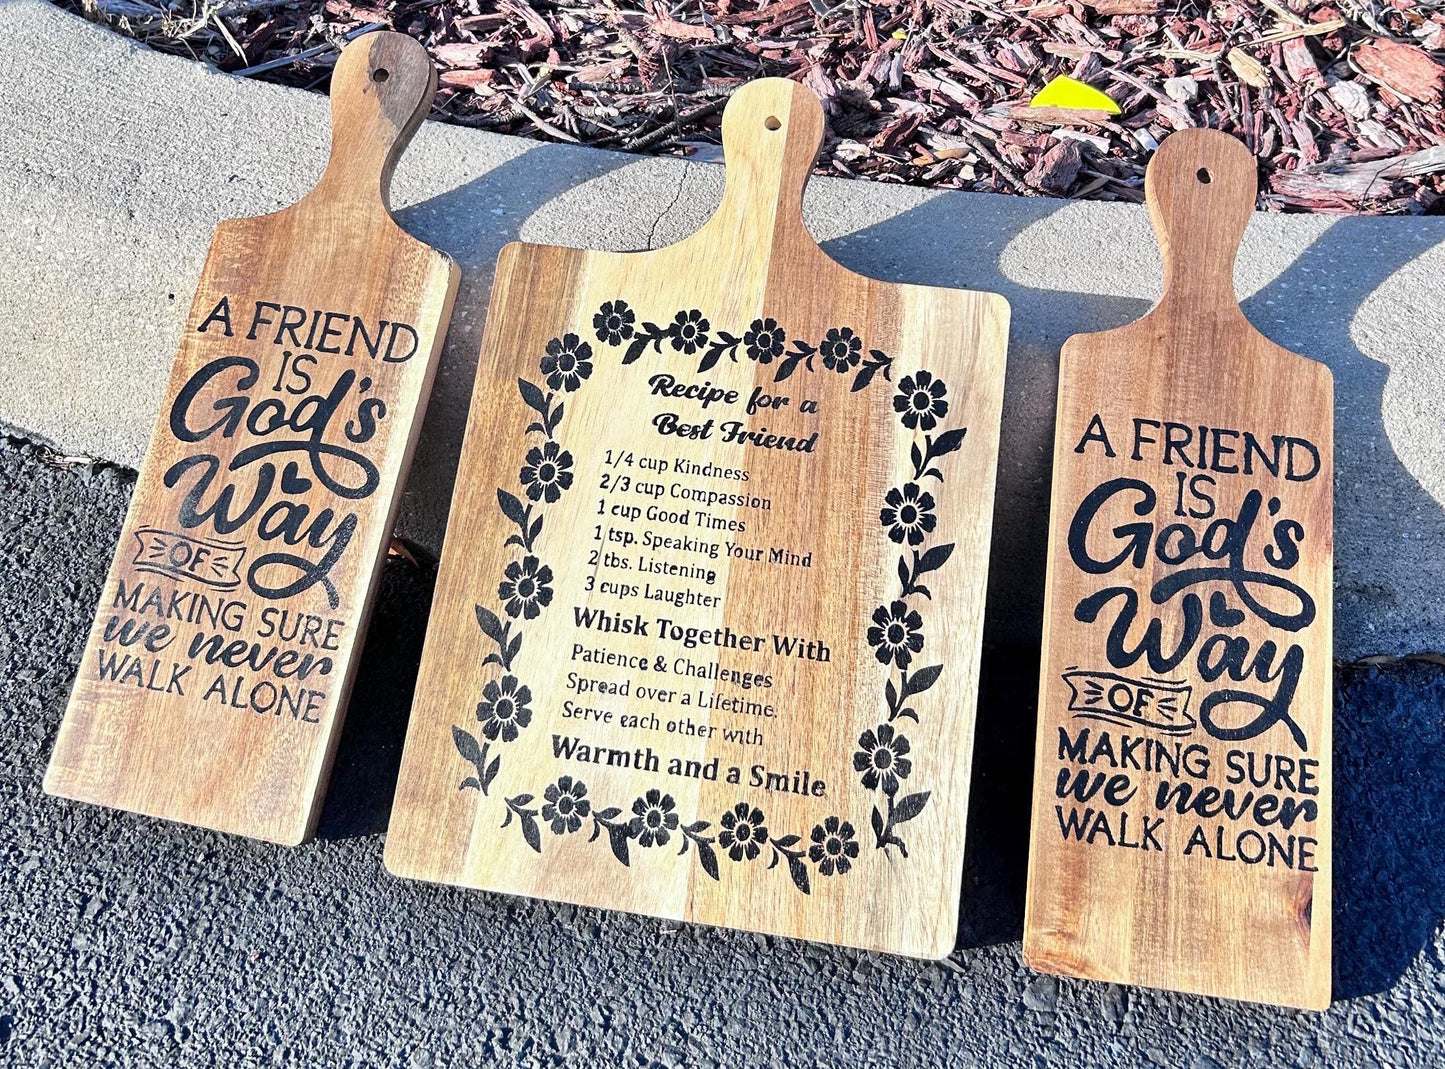 A FRIEND
IS
God's
Way
OF
MAKING SURE
we never
WALK ALONE
Recipe for a
Best Friend
1/4 cup Kindness
2/3 cup Compassion
1 cup Good Times
1 tsp. Speaking Your Mind
2 tbs. Listening
3 cups Laughter
Whisk Together With
Patience & Challenges
Spread over a Lifetime.
Serve each other with
Warmth and a Smile
A FRIEND
IS
God's
Way
OF
MAKING SURE
we never
WALK ALONE